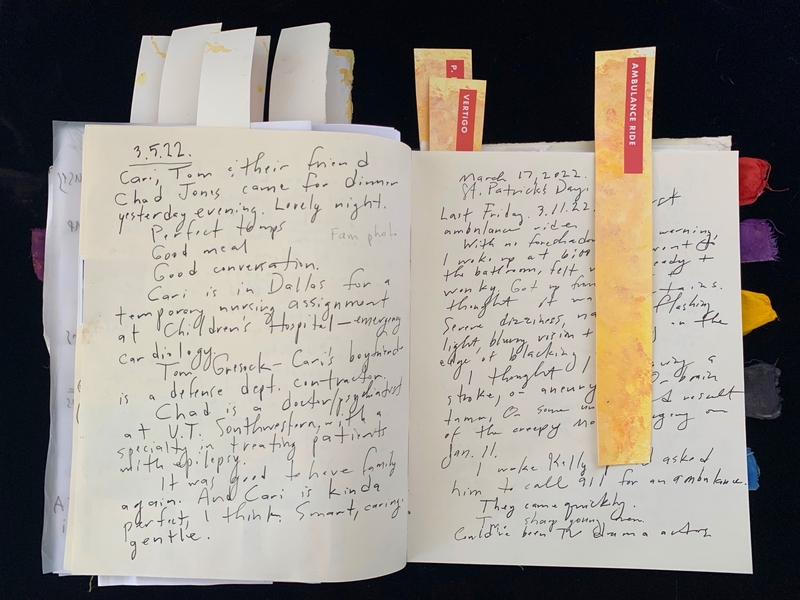 3.5.22.
Cari, Tom & their friend
Chad Jones came for dinner
yesterday evening. Lovely night.
Perfect temps
Good meal
Good conversation.
Fam photo
Cari is in Dallas for a
temporary nursing assignment
at Children's Hospital — emergency
cardiology
Tom Gresock — Cari's boyfriend
is a defense dept. contractor.
Chad is a doctor/psychiatrist
at U.T. Southwestern, with a
specialty in treating patients
with epilepsy.
It was good to have family
again. And Cari is kinda
perfect, I think. Smart, caring,
gentle.
P.
VERTIGO
AMBULANCE RIDE
March 17, 2022.
St. Patrick's Day.
Last Friday, 3.11.22.
ambulance ride
With no warning,
I woke up at 6:00 went to
the bathroom, felt
wonky. Got up
thought it
Severe dizziness, flashing
light, blurry vision + on the
edge of blacking
I thought I a
stroke, or brain
tumor, Or some A result
of the creepy on
Jan. 11.
I woke Kelly asked
him to call 911 for an ambulance.
They came quickly.
sharp young men.
Could've been TV drama actors